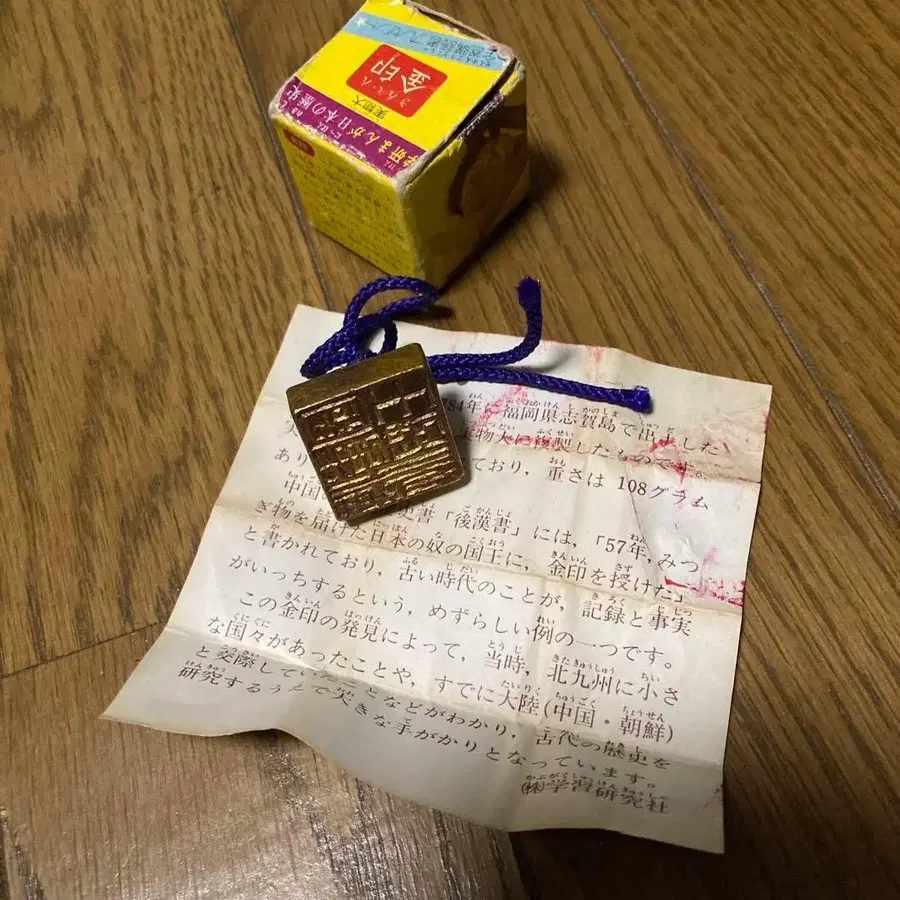 全愛読者プレゼント
きんいん
金印
実物大
学研まんが日本の歴史
84年に福岡県志賀島で出土した
物大に複製したものです。
あり ており，重さは108グラム
中国 史書「後漢書」には，「57年，みつ
ぎ物を届けた日本の奴の国王に，金印を授けた」
と書かれており，古い時代のことが，記録と事実
がいっちするという，めずらしい例の一つです。
この金印の発見によって，当時，北九州に小さ
な国々があったことや，すでに大陸（中国・朝鮮）
と交際していたことなどがわかり，古代の歴史を
研究するうえで大きな手がかりとなっています。
㈱学習研究社